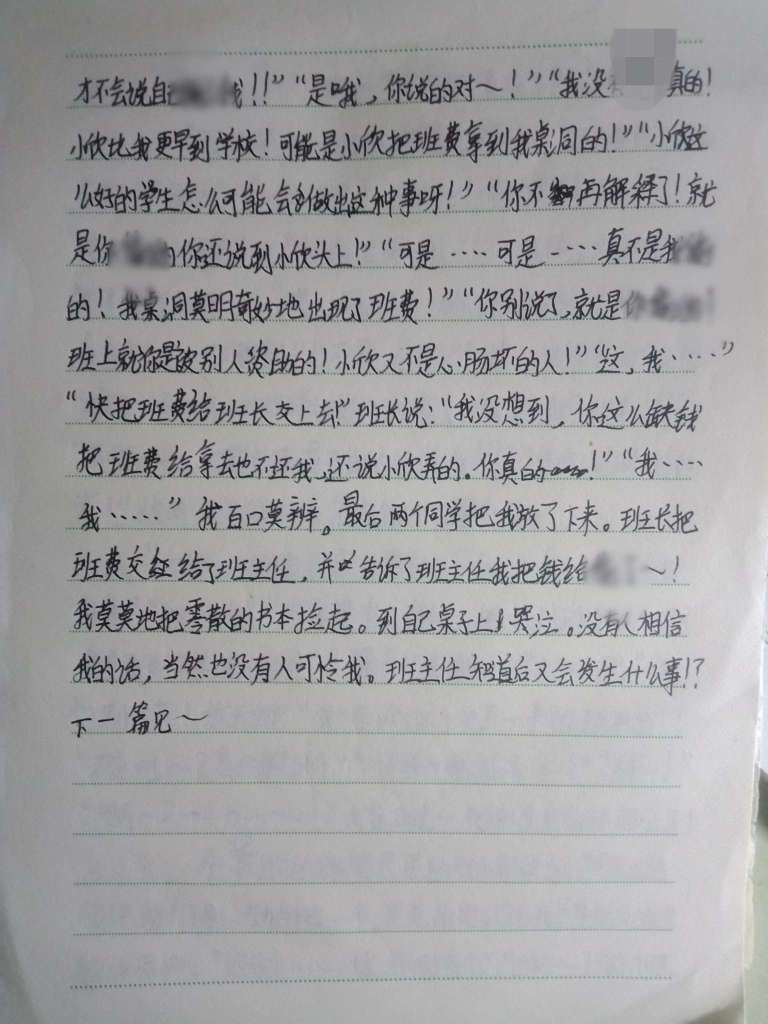 才不会说自 我!!”“是哦,你说的对~!”“我没 真的!
小欣比我更早到学校!可能是小欣把班费拿到我桌洞的!”“小欣这
么好的学生怎么可能会做出这种事呀!”“你不 再解释了!就
是你 的你还说到小欣头上!”“可是····可是····真不是我
的!我桌洞莫明奇妙地出现了班费!”“你别说了,就是你
班上就你是被别人资助的!小欣又不是心肠坏的人!”“这,我·····”
“快把班费给班长交上去!”班长说:“我没想到,你这么缺钱
把班费给拿去也不还我,还说小欣弄的。你真的 !”“我····
我·····”我百口莫辨。最后两个同学把我放了下来。班长把
班费交给了班主任,并 告诉了班主任我把钱给 了~!
我莫莫地把零散的书本捡起。到自己桌子上哭泣。没有人相信
我的话,当然也没有人可怜我。班主任知道后又会发生什么事!?
下一篇见~